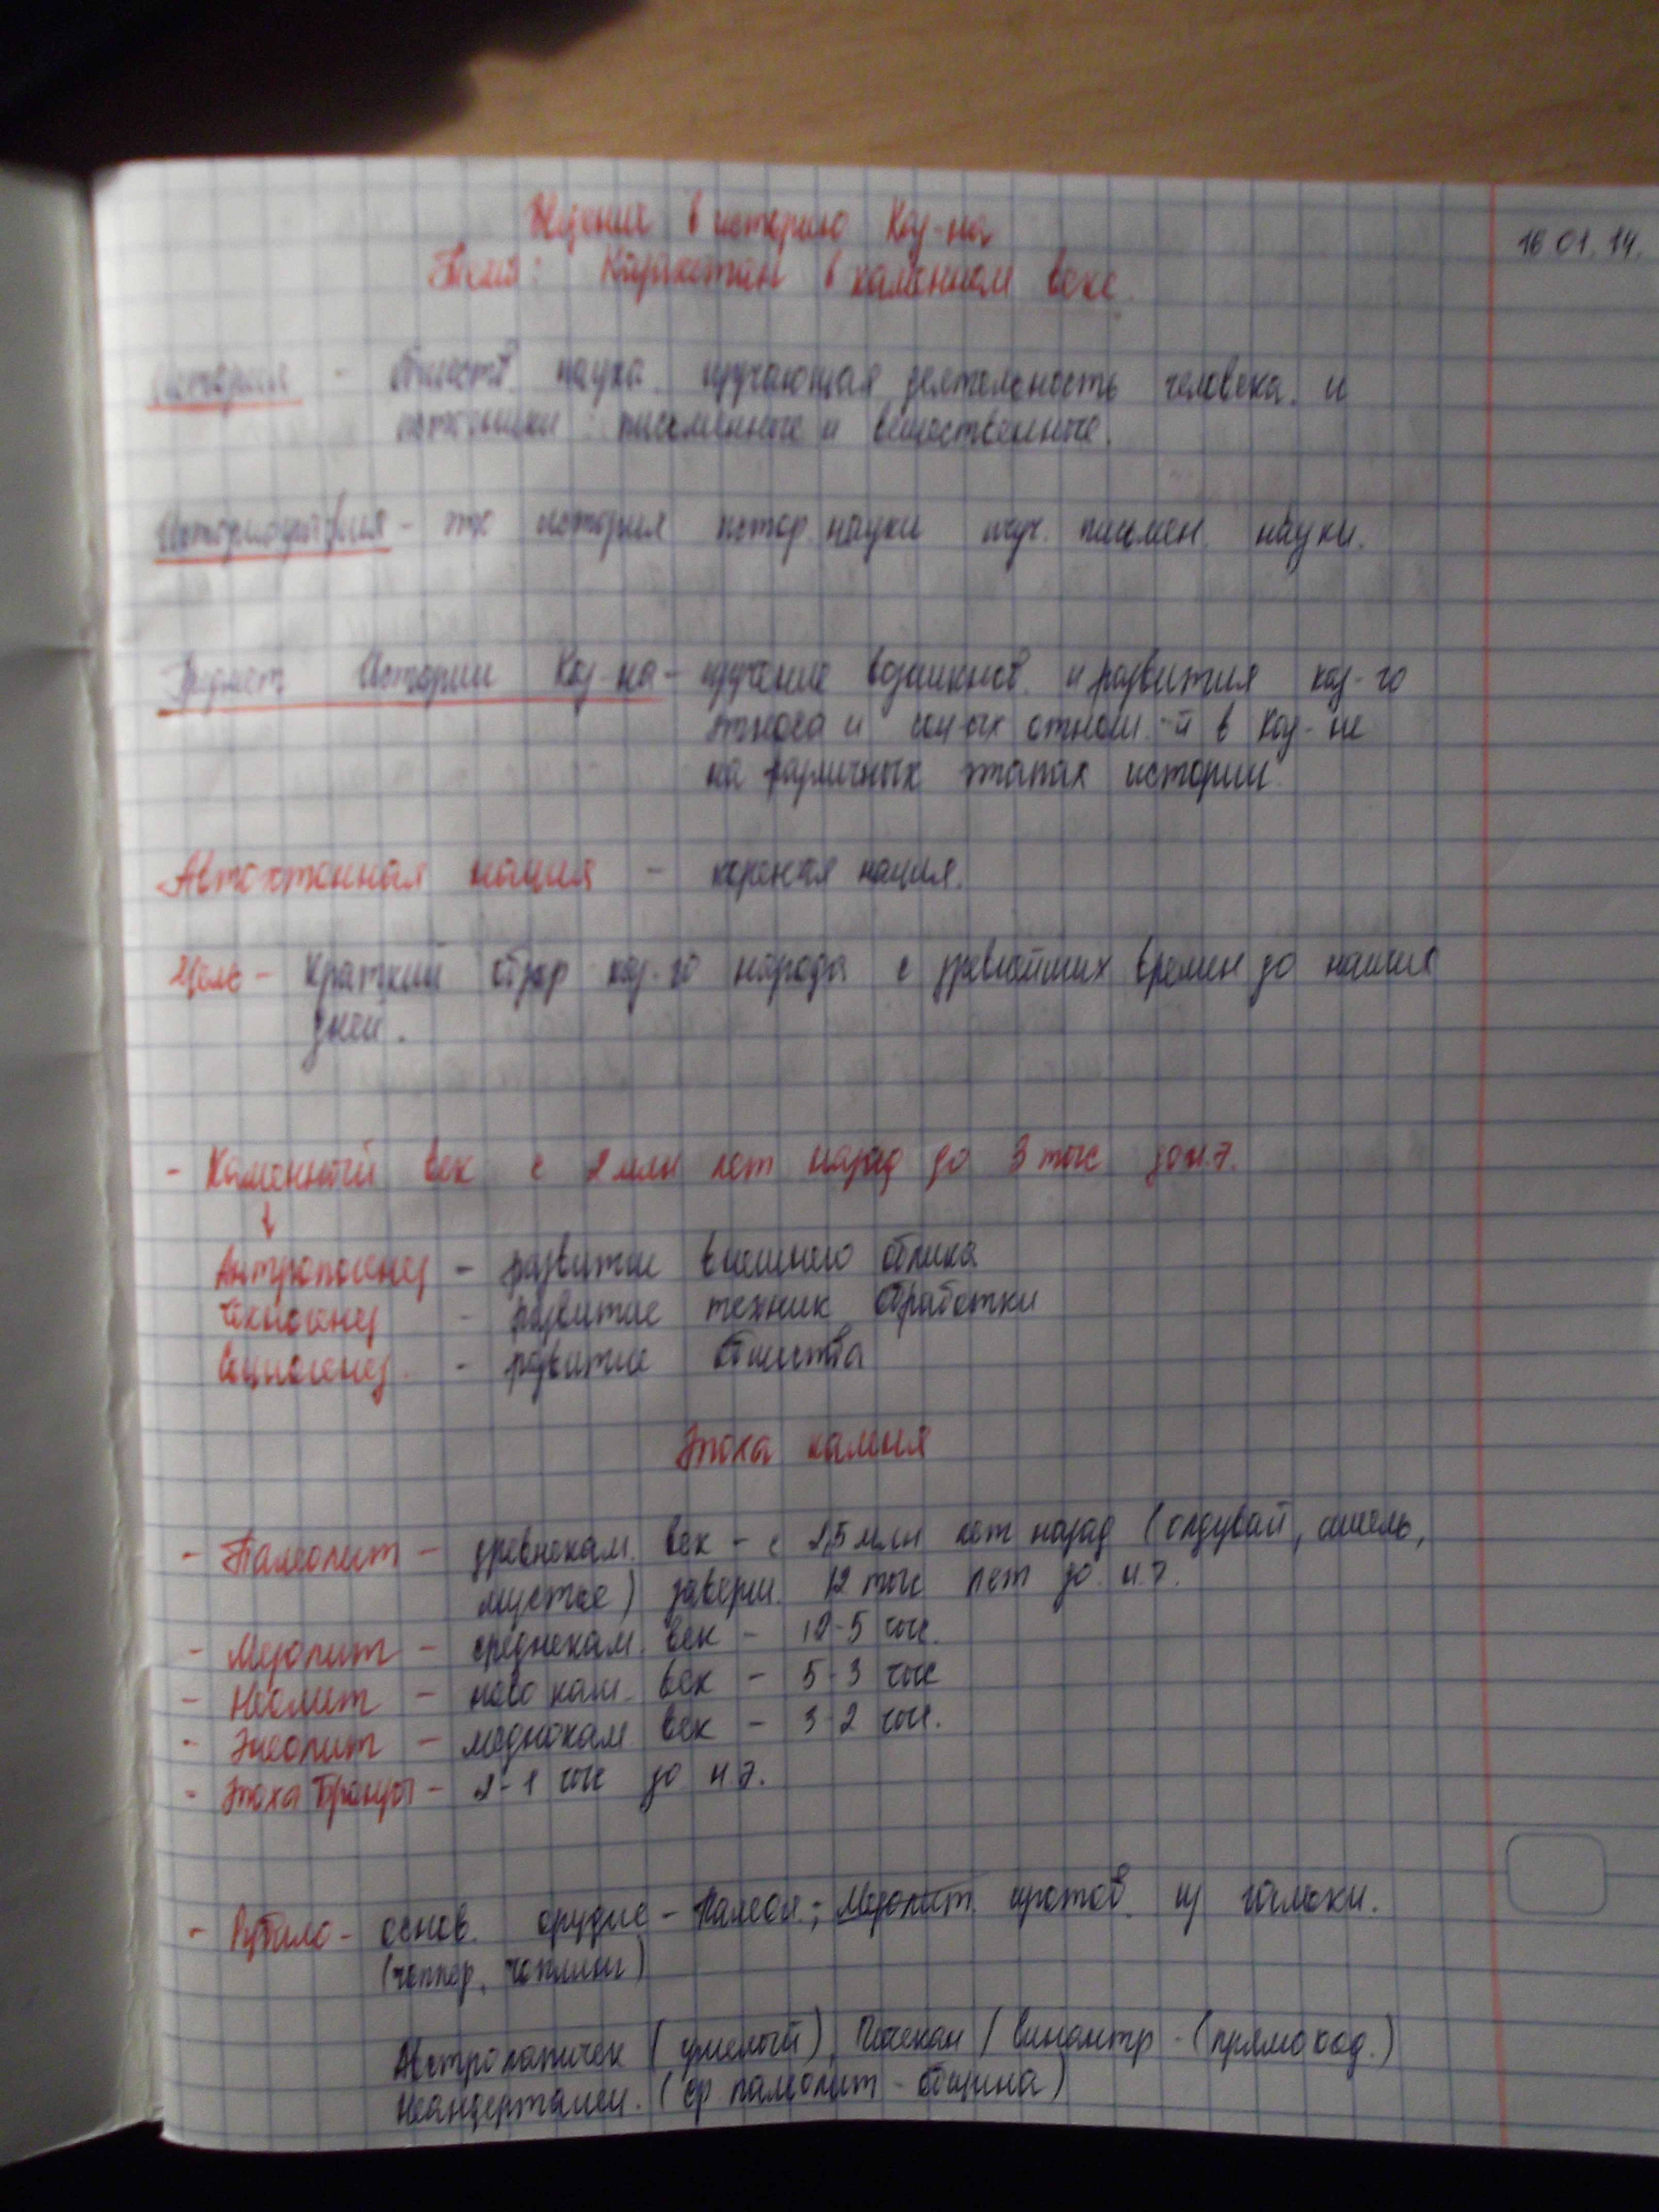 в историю Каз-на
16.01.14.
Тема: Казахстан в каменном веке.
История - обществ. наука, изучающая деятельность человека. и
источники: письменные и вещественные.
Историография - это история истор. науки изуч. письмен. науки.
Предмет Истории Каз-на - изучение возникнов. и развития каз-го
этноса и соц-ых отнош.-й в Каз-не
на различных этапах истории.
Автохтонная нация - кореная нация.
Цель - Краткий обзор каз-го народа с древнейших времен до наших
дней.
- Каменный век с 2 млн лет назад до 3 тыс до н.э.
↓
Антропогенез - развитие внешнего облика
Техногенез - развитие техник обработки
Социогенез. - развитие общества
Эпоха камня
- Палеолит - древнекам. век - с 2,5 млн лет назад (олдувай, ашель,
мустье) заверш. 12 тыс лет до н.э.
- Мезолит - среднекам. век - 12-5 тыс.
- Неолит - новокам. век - 5-3 тыс
- Энеолит - меднокам. век - 3-2 тыс.
- Эпоха Бронзы - 2-1 тыс до н.э.
- Рубило - основ. орудие - Палеол.; Мезолит. изготов. из гальки.
(чоппер, чоппинг)
Австралопитек (умелый), / синантр - (прямоход.)
Неандерталец. (ср. палеолит - община)